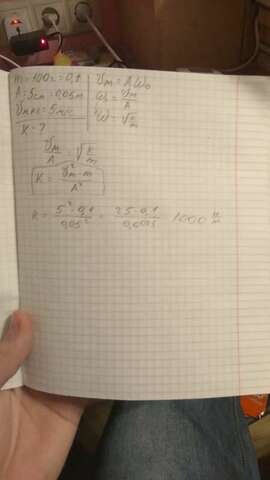 m=100г=0,1
A=5см=0,05м
υмакс=5м/с
K-?
υm=Aω₀
ω₀=υm/A
ω=√k/m
υm/A=√k/m
K=υ²m·m/A²
K=5²·0,1/0,05²=25·0,1/0,0025 1000 н/м